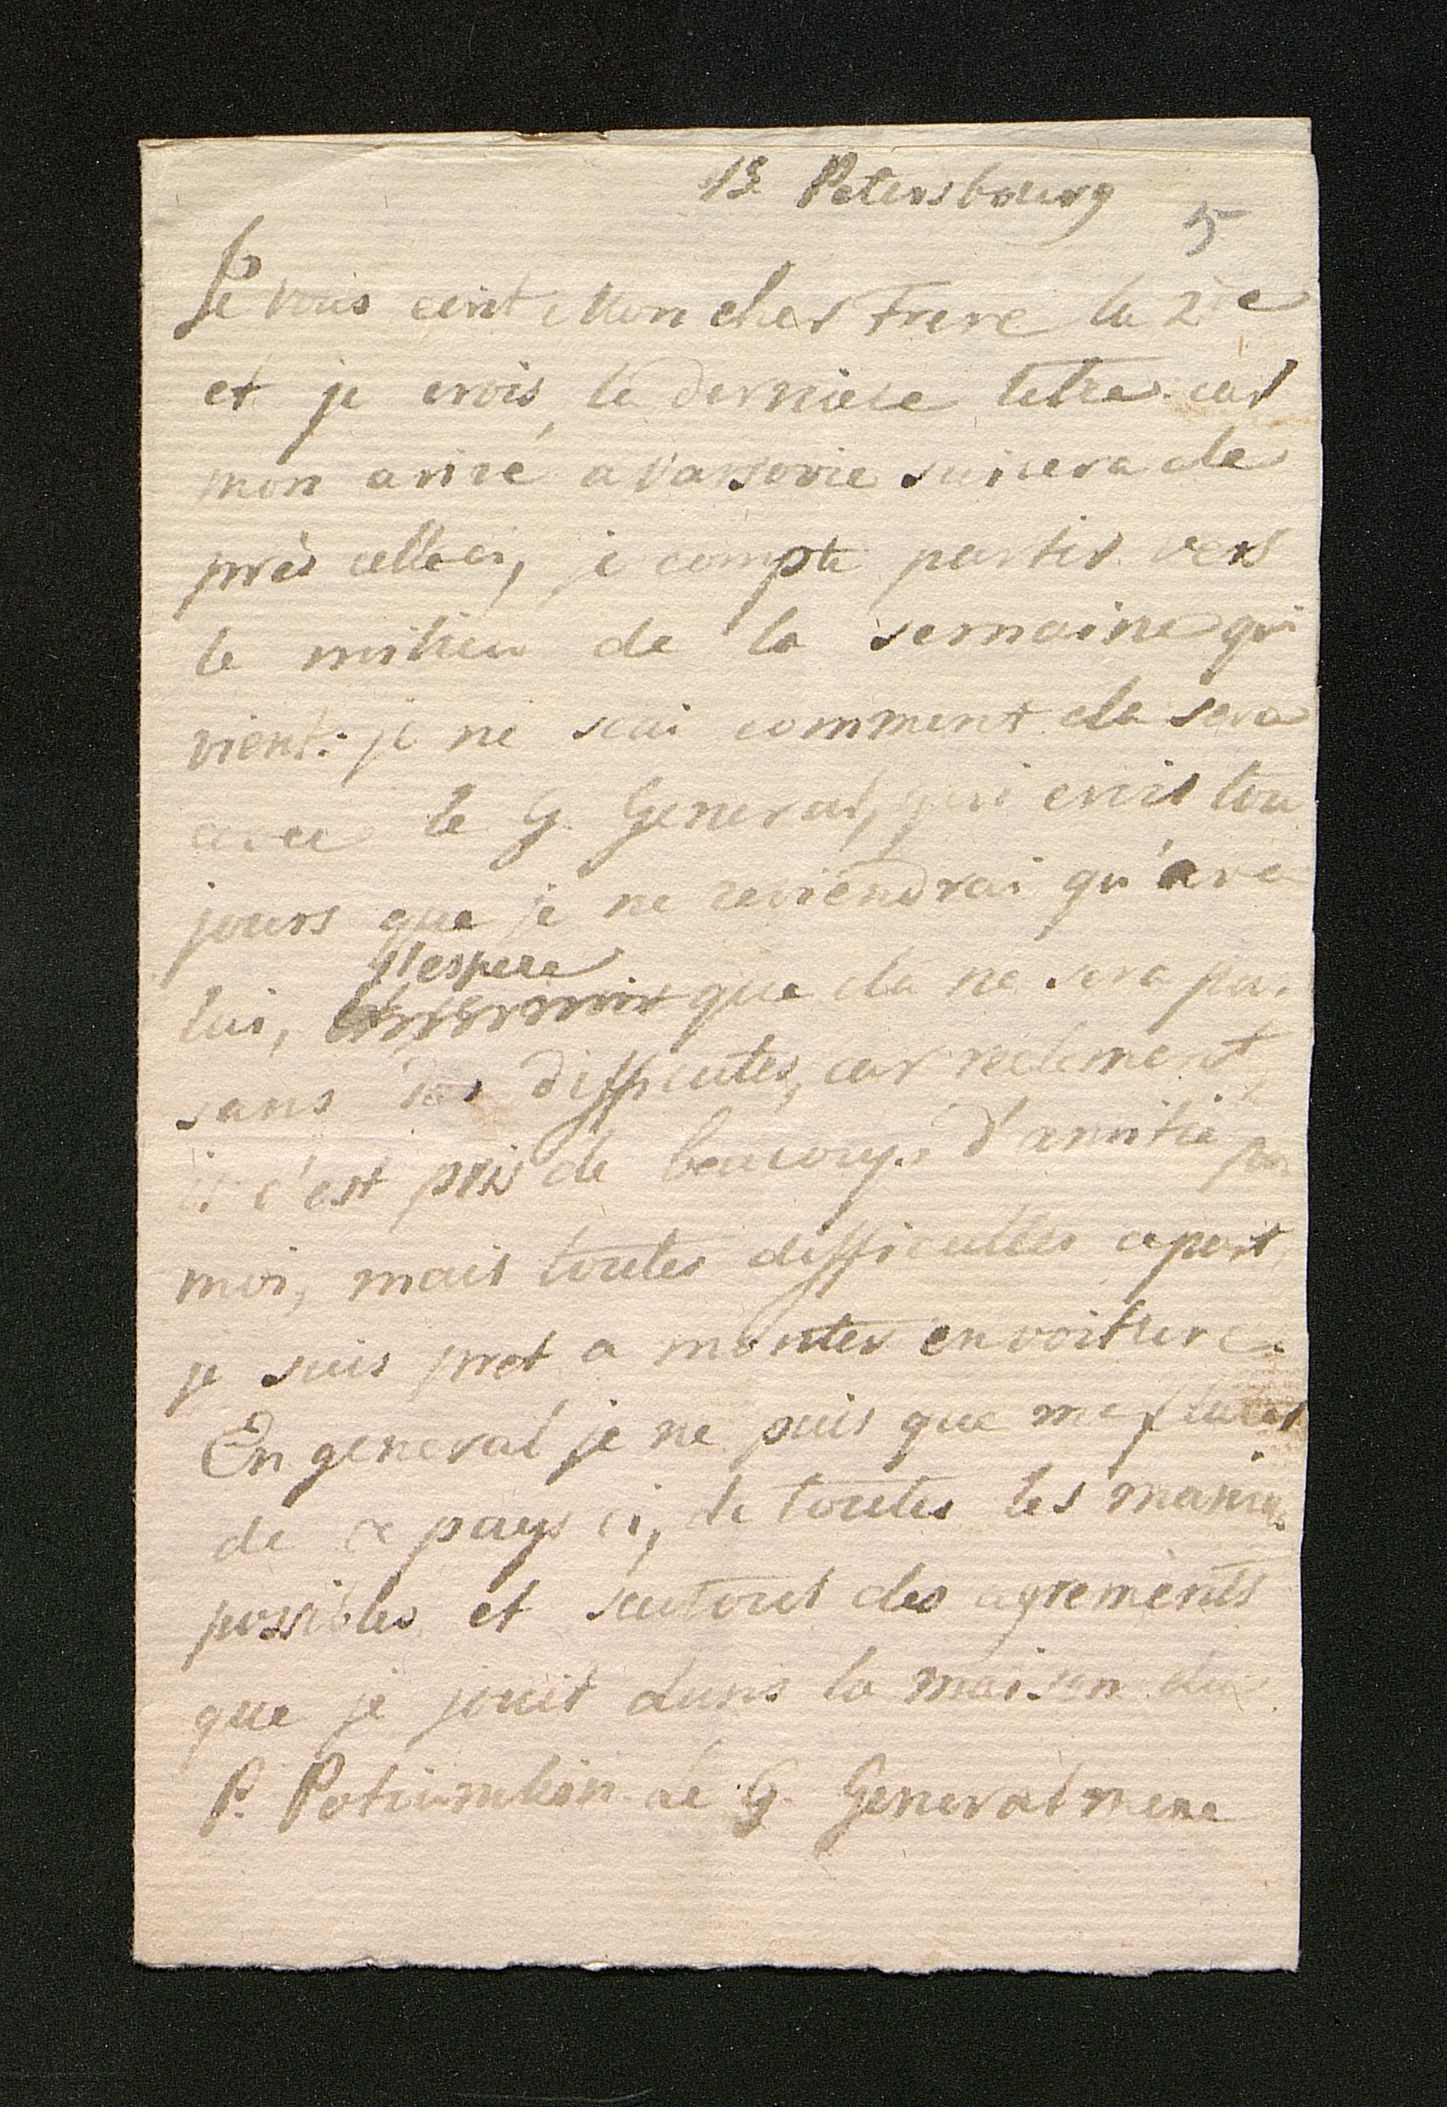 13. Petersbourg
5
Je vous ecrit Mon cher Frere la 2de
et je crois, la derniere letre car
mon arivé a Varsovie suivera de
près celleci, je compte partir vers
le milieu de la semaine qui
vient. je ne scai comment cela sera
avec le G. General, qui ecrit tou
jours que je ne reviendrai qu'avec
j'espere
lui, que cela ne sera pas
sans des difficutes, car reelement
il c'est pris de beaucoup d'amitié pour
moi, mais toutes difficultes apart,
je suis pret a monter en voiture.
En general je ne puis que me louer
de ce pays ci, de toutes les manieres
possibles et surtout des agrements
que je jouit dans la maison du
P. Potiumkin. Le G. General mene